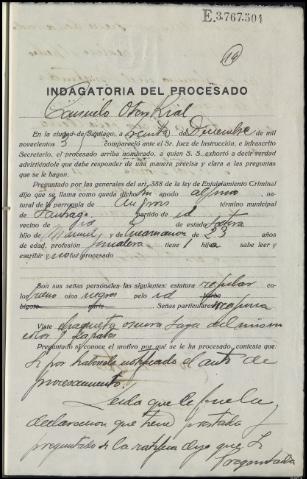 E.3.767.504
19
INDAGATORIA DEL PROCESADO
Consuelo Otón Rial
En la ciudad de Santiago, a treinta de Diciembre de mil
novecientos 39 compareció ante el Sr. Juez de Instrucción, e infrascrito
Secretario, el procesado arriba nombrado, a quien S. S. exhortó a decir verdad
advirtiéndole que debe responder de una manera precisa y clara a las preguntas
que se le hagan.
Preguntado por las generales del art. 388 de la ley de Enjuiciamiento Criminal
dijo se llama como queda dicho apodo
natural de la parroquia de término municipal
de Santiago partido de id
vecino de id de estado soltera
hijo de Manuel y de de 23 años
de edad, profesión jornalera tiene 1 hija sabe leer y
escribir no procesado
Son sus señas personales las siguientes: estatura regular
color ojos negros pelo id
bigote Señas particulares
Viste chaqueta saya del mismo
color y zapatos
Preguntado si conoce el motivo por qué se le ha procesado, contesta:
Si por habersele notificado el auto de
procesamiento.
Leida que le fue la
declaracion que tiene prestada y
preguntado si la ratifica dijo que Si
Preguntada